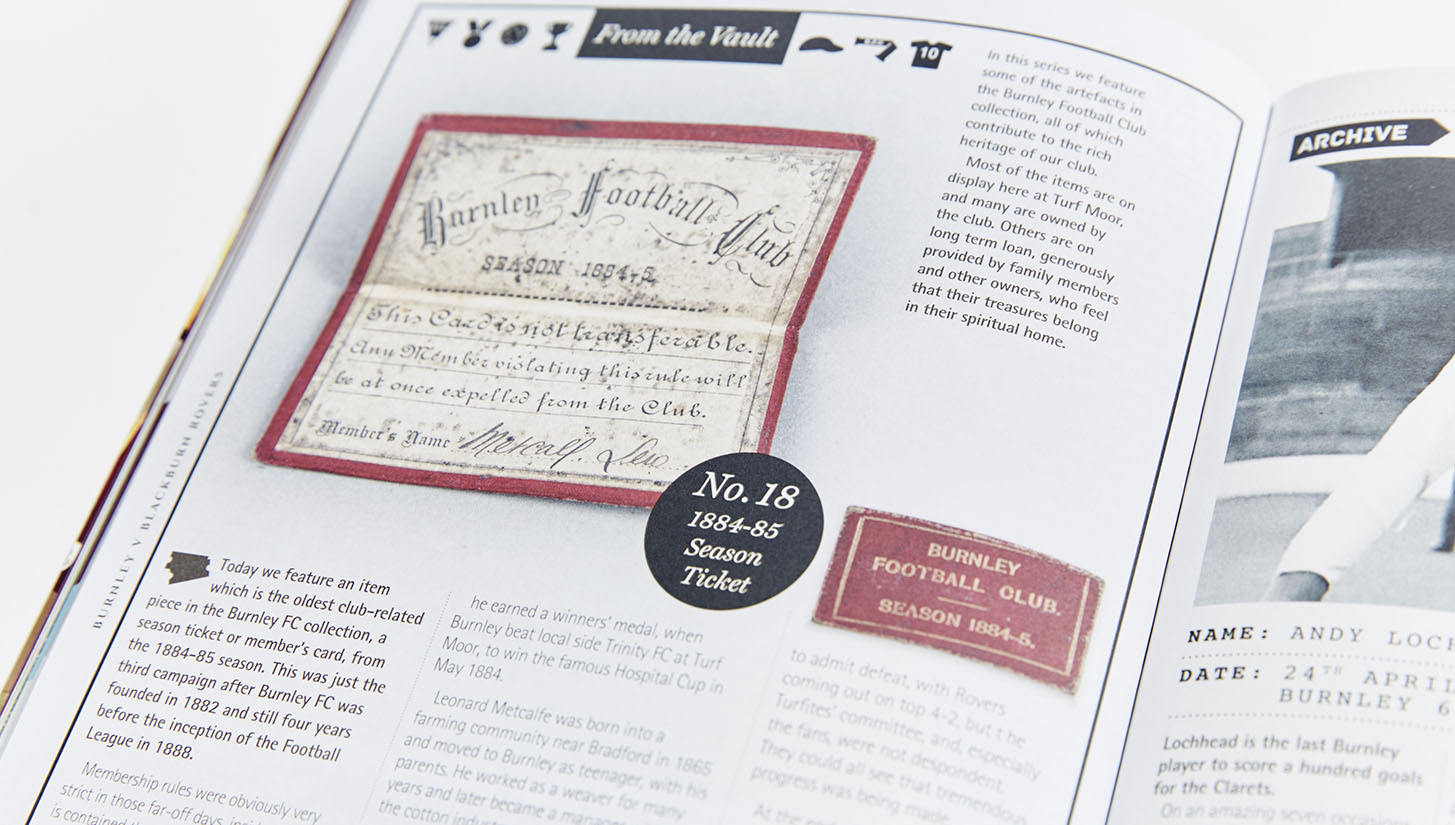 From the Vault
10
In this series we feature
some of the artefacts in
the Burnley Football Club
collection, all of which
contribute to the rich
heritage of our club.
Most of the items are on
display here at Turf Moor,
and many are owned by
the club. Others are on
long term loan, generously
provided by family members
and other owners, who feel
that their treasures belong
in their spiritual home.
Burnley Football Club
SEASON 1884-5.
This Card is not transferable.
Any Member violating this rule will
be at once expelled from the Club.
Member's Name Metcalf. Leo
No. 18
1884-85
Season
Ticket
BURNLEY
FOOTBALL CLUB.
SEASON 1884-5.
BURNLEY V BLACKBURN ROVERS
Today we feature an item
which is the oldest club-related
piece in the Burnley FC collection, a
season ticket or member's card, from
the 1884-85 season. This was just the
third campaign after Burnley FC was
founded in 1882 and still four years
before the inception of the Football
League in 1888.
Membership rules were obviously very
strict in those far-off days,
is contained
he earned a winners' medal, when
Burnley beat local side Trinity FC at Turf
Moor, to win the famous Hospital Cup in
May 1884.
Leonard Metcalfe was born into a
farming community near Bradford in 1865
and moved to Burnley as teenager, with his
parents. He worked as a weaver for many
years and later became a
the cotton
to admit defeat, with Rovers
coming out on top 4-2, but t he
Turfites' committee, and, especially
the fans, were not despondent.
They could all see that tremendous
progress was being made.
At the
ARCHIVE
NAME: ANDY LOCH
DATE: 24TH APRIL
BURNLEY 6
Lochhead is the last Burnley
player to score a hundred goals
for the Clarets.
On an amazing seven occasions